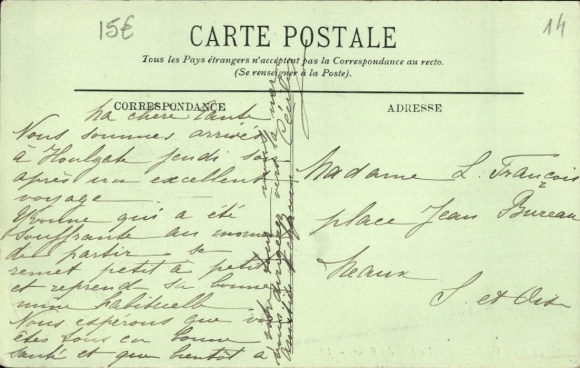 15€
14
CARTE POSTALE
Tous les Pays étrangers n'acceptent pas la Correspondance au recto.
(Se renseigner à la Poste).
CORRESPONDANCE
ADRESSE
Ma chère tante
Nous sommes arrivés
à Houlgate jeudi soir
après un excellent
voyage
qui a été
souffrante au moment
de partir se
remet petit à petit
et reprend sa bonne
mine habituelle
Nous espérons que vous
êtes tous en bonne
santé et que bientôt
Madame L. François
place Jean Bureau
Meaux
S. et Oise